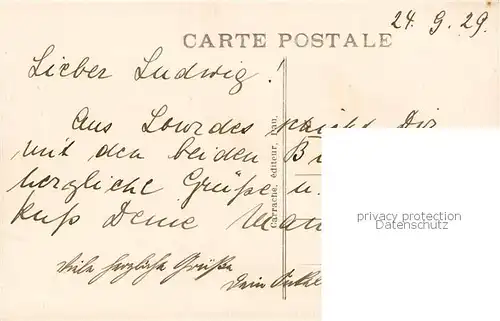 24. 9. 29.
CARTE POSTALE
Lieber Ludwig!
Aus Lourdes Dir
mit den beiden B
herzliche Grüße u.
Kuß Deine
Viele herzliche Grüße
Dein Onkel
Carrache, éditeur,
privacy protection
Datenschutz